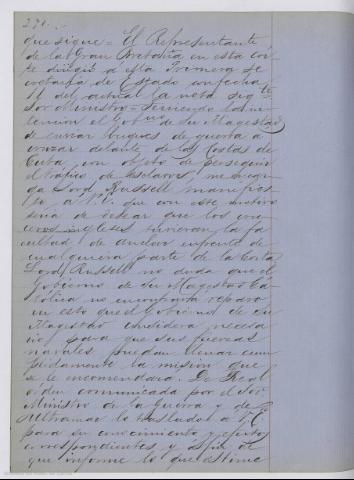 270.
que sigue = El Representante
de la Gran Bretaña en esta cor
te dirigió á esta Primera Se
cretaría de Estado con fecha
11 del actual la nota sigte
Sor Ministro = Teniendo la in
tencion el Gobno de Su Magestad
de enviar buques de guerra á
cruzar delante de las Costas de
Cuba con objeto de perseguir
el tráfico de esclavos, me encar
ga Lord Russell manifies
te á V.E. que con este motivo
seria de desear que los cru
ceros ingleses tuvieran la fa
cultad de anclar enfrente de
cualquiera parte de la Costa
Lord Russell no duda que el
Gobierno de Su Magestad Ca
tolica no encontrará reparo
en esto que el Gobierno de Su
Magestad considera necesa
rio para que sus fuerzas
navales puedan llenar cum
plidamente la mision que
se le encomendara. De Real
orden comunicada por el Sor
Ministro de la Guerra y de
Ultramar lo traslado á V.E.
para su conocimiento y efectos
correspondientes y á fin de
que informe lo que estime